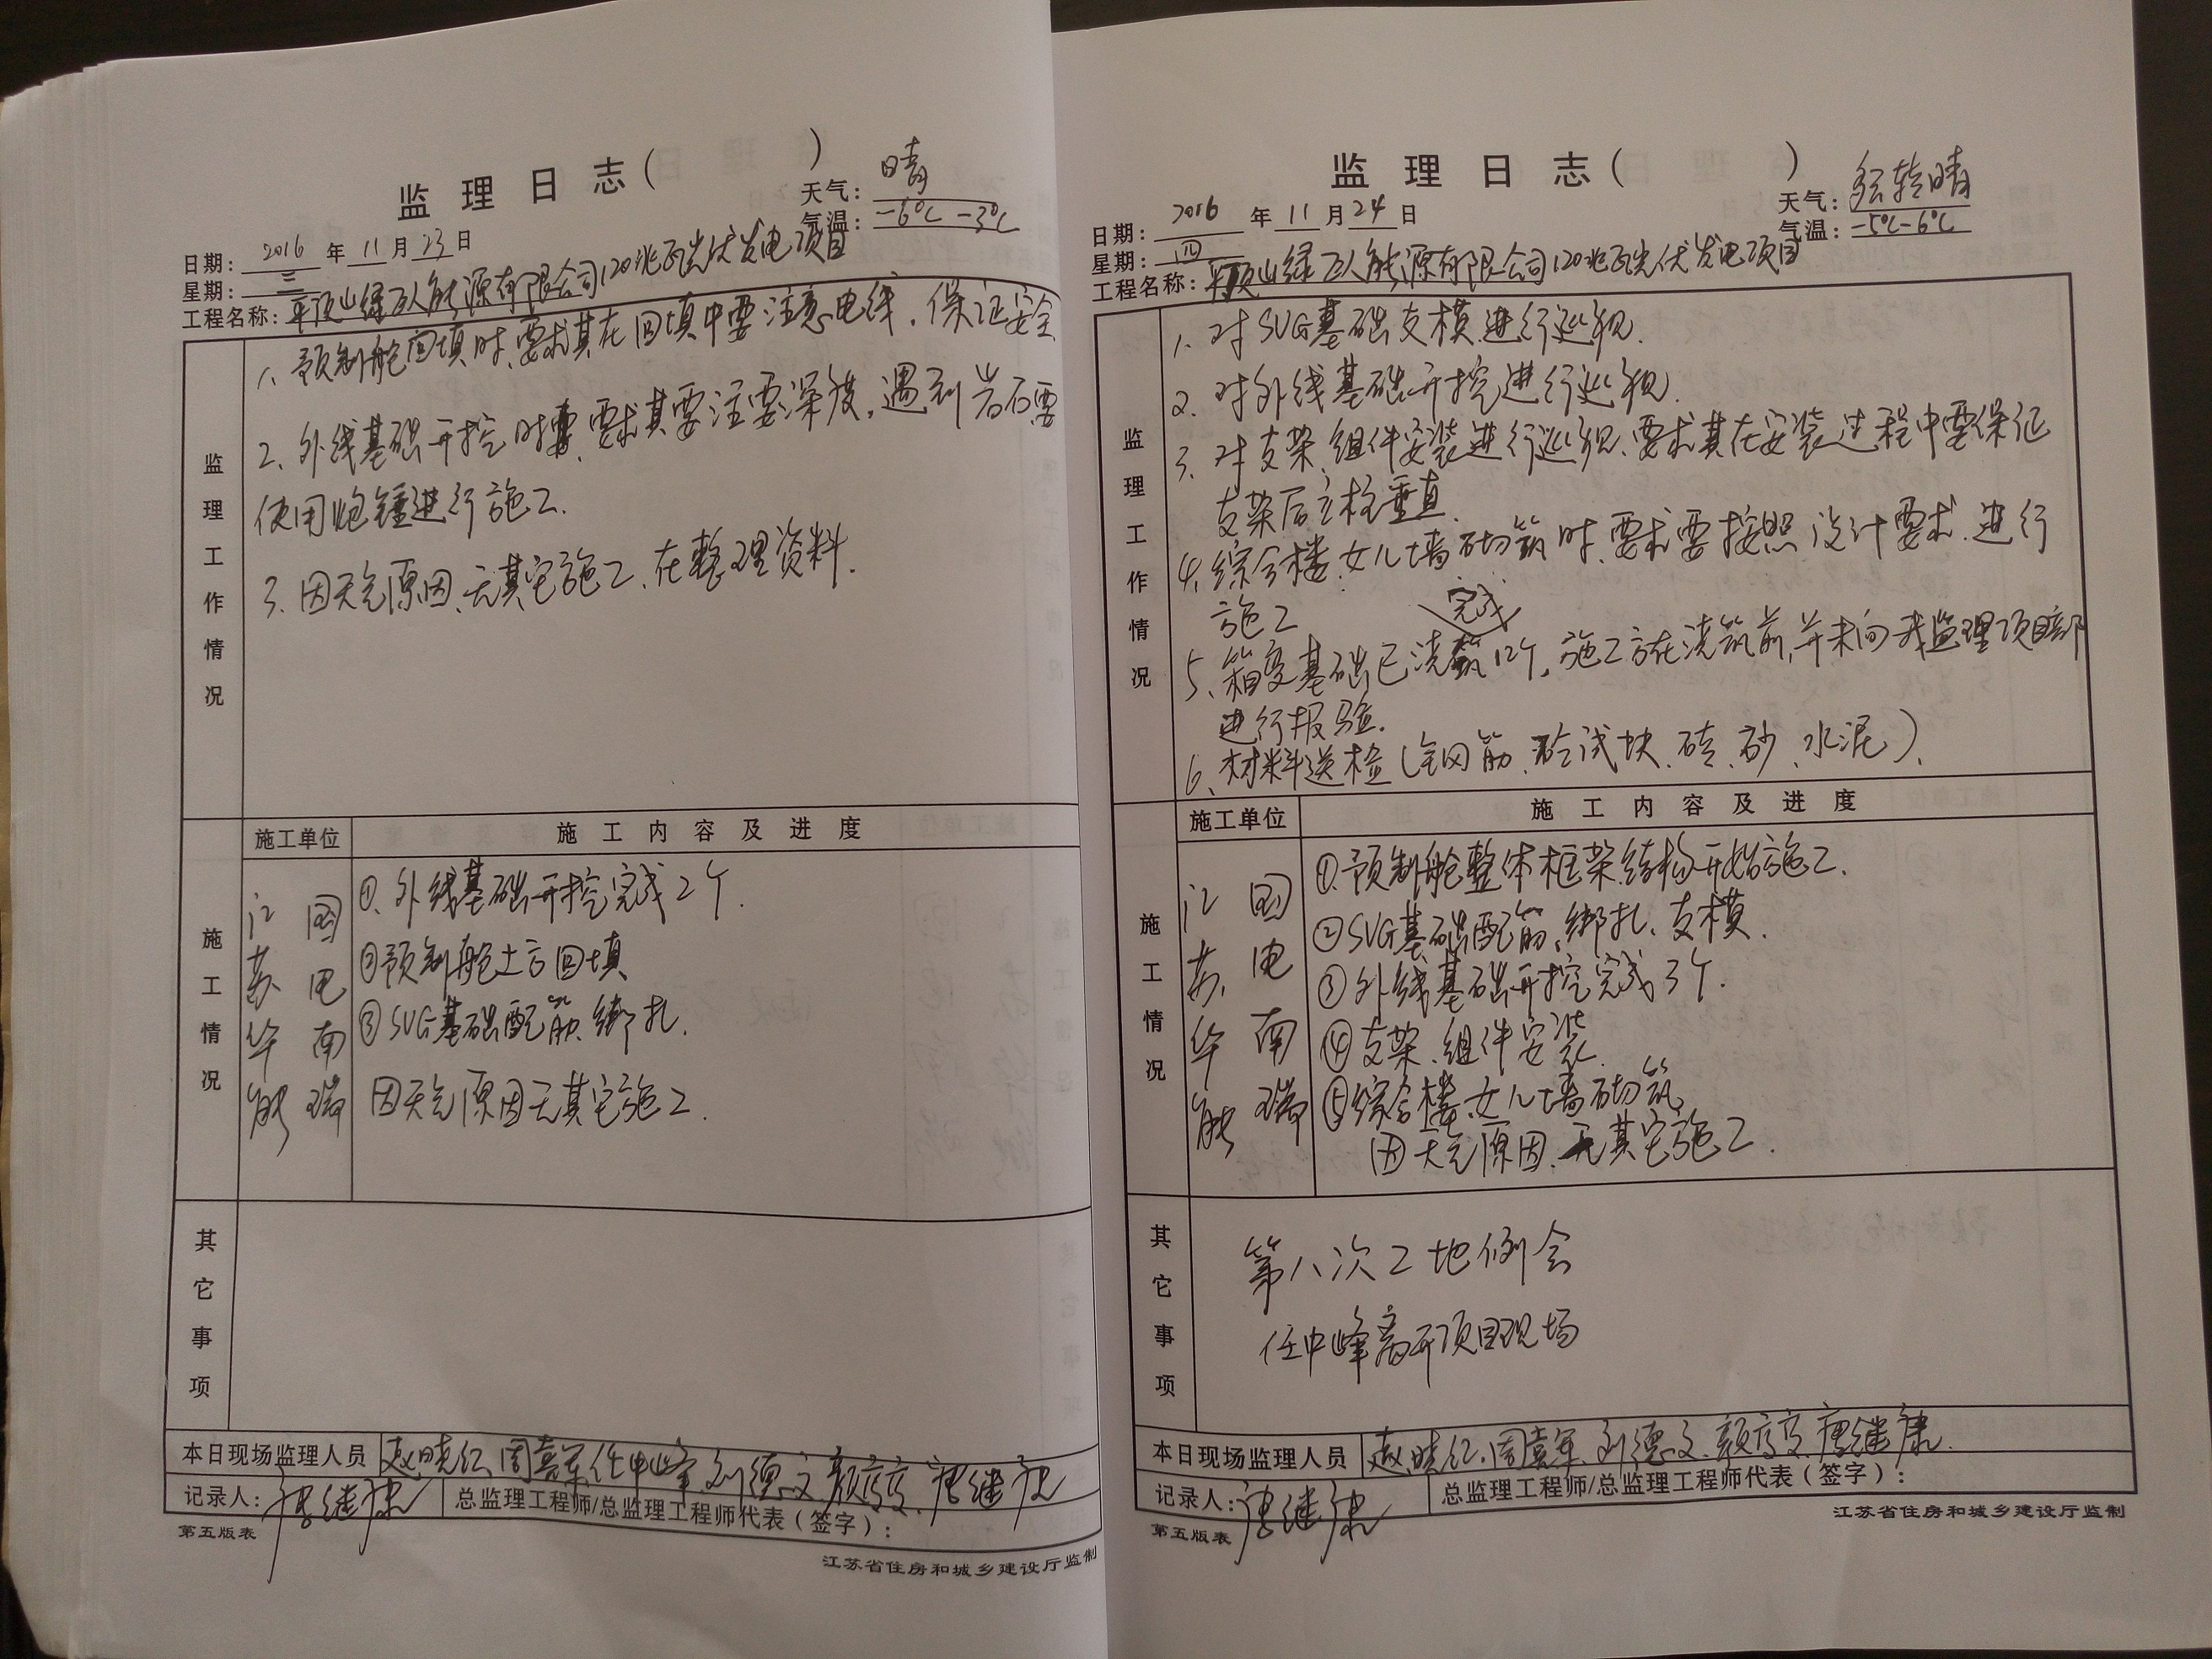 监理日志（ ）
天气：晴
气温：-6℃-3℃
日期：2016年11月23日
星期：三
工程名称：平顶山绿巨人能源有限公司120兆瓦光伏发电项目
监理工作情况
1、预制舱回填时、要求其在回填中要注意电线，保证安全
2、外线基础开挖时，要求其要注要深度，遇到岩石需
使用炮锤进行施工.
3、因天气原因、无其它施工、在整理资料.
施工情况
施工单位
施工内容及进度
江苏华能
国电南瑞
①、外线基础开挖完成2个.
②预制舱土方回填
③SVG基础配筋、绑扎.
因天气原因无其它施工.
其它事项
本日现场监理人员 赵晓红、周嘉军、任中峰、刘德文、颜亭亭、唐继康
记录人：唐继康 总监理工程师/总监理工程师代表（签字）：
第五版表
江苏省住房和城乡建设厅监制
监理日志（ ）
天气：多云转晴
气温：-5℃-6℃
日期：2016年11月24日
星期：四
工程名称：平顶山绿巨人能源有限公司120兆瓦光伏发电项目
监理工作情况
1、对SVG基础支模进行巡视.
2、对外线基础开挖进行巡视.
3、对支架、组件安装进行巡视、要求其在安装过程中要保证
支架后立柱垂直.
4、综合楼、女儿墙砌筑时、要求要按照设计要求、进行
施工
5、箱变基础已浇筑完成12个，施工方在浇筑前，并未向我监理项目部
进行报验.
6、材料送检（钢筋、砼试块、砖、砂、水泥）.
施工情况
施工单位
施工内容及进度
江苏华能
国电南瑞
①、预制舱整体框架结构开始施工.
②SVG基础配筋、绑扎、支模.
③外线基础开挖完成3个.
④支架、组件安装.
⑤综合楼、女儿墙砌筑
因天气原因、无其它施工.
其它事项
第八次工地例会
任中峰离开项目现场
本日现场监理人员 赵晓红、周嘉军、刘德文、颜亭亭、唐继康.
记录人：唐继康 总监理工程师/总监理工程师代表（签字）：
第五版表
江苏省住房和城乡建设厅监制